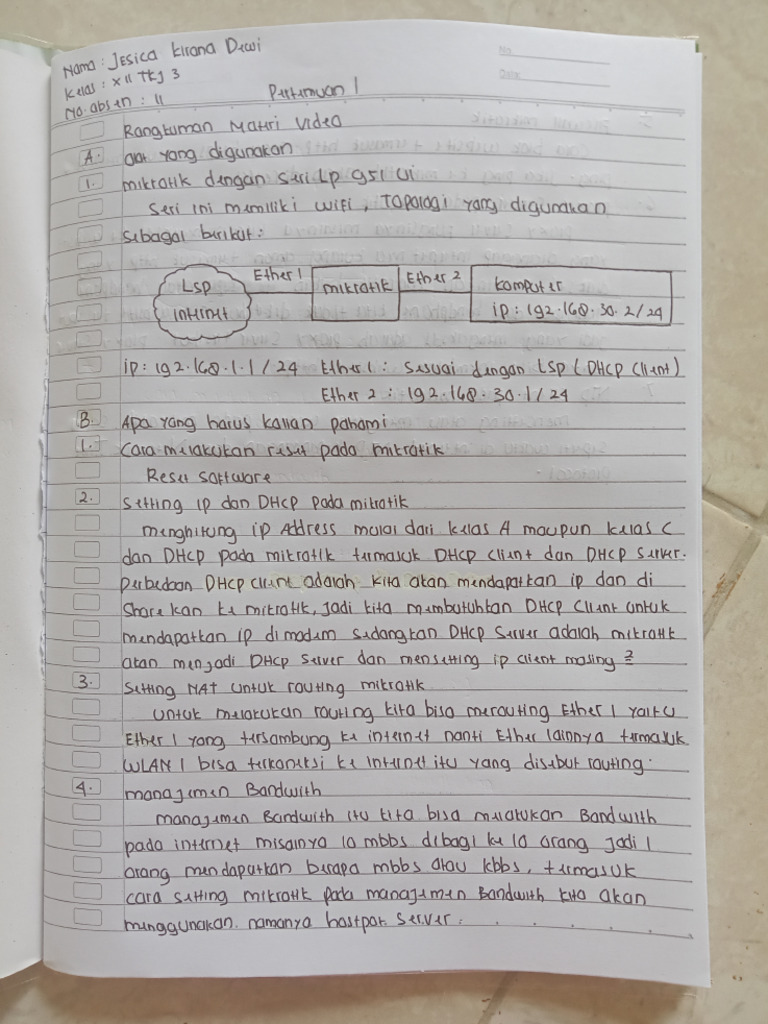 No.
Date
Nama : Jesica Kirana Dewi
Kelas : XII TKJ 3
No. absen : 11
Pertemuan 1
Rangkuman Materi Video
A. alat yang digunakan
1. mikrotik dengan seri Lp 951 Ui
Seri ini memiliki wifi, Topologi yang digunakan
sebagai berikut :
LSP
internet
Ether 1
mikrotik
Ether 2
komputer
ip : 192.168.30.2/24
ip : 192.168.1.1/24 Ether 1 : Sesuai dengan LSP (DHCP Client)
Ether 2 : 192.168.30.1/24
B. Apa yang harus kalian pahami
1. Cara melakukan reset pada mikrotik
Reset Software
2. Setting ip dan DHCP pada mikrotik
menghitung ip Address mulai dari kelas A maupun kelas C
dan DHCP pada mikrotik termasuk DHCP client dan DHCP Server.
perbedaan DHCP client adalah kita akan mendapatkan ip dan di
Share kan ke mikrotik, jadi kita membutuhkan DHCP Client untuk
mendapatkan ip di modem sedangkan DHCP Server adalah mikrotik
akan menjadi DHCP Server dan mensetting ip client masing 2
3. Setting NAT untuk routing mikrotik
untuk melakukan routing kita bisa merouting Ether 1 yaitu
Ether 1 yang tersambung ke internet nanti Ether lainnya termasuk
WLAN 1 bisa terkoneksi ke internet itu yang disebut routing.
4. manajemen Bandwith
manajemen Bandwith itu kita bisa melakukan Bandwith
pada internet misalnya 10 mbbs dibagi ke 10 orang jadi 1
orang mendapatkan berapa mbbs atau kbbs, termasuk
cara setting mikrotik pada manajemen Bandwith kita akan
menggunakan. namanya hostpot Server.